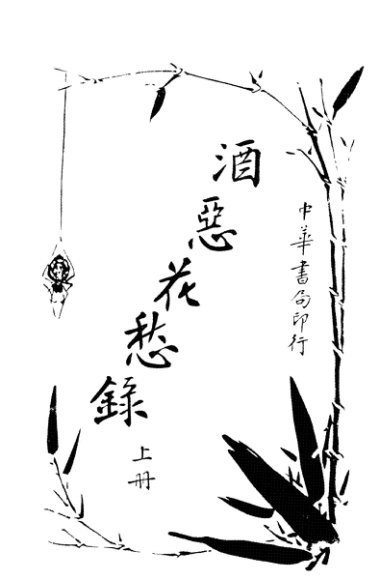 酒惡花愁錄
上册
中華書局印行